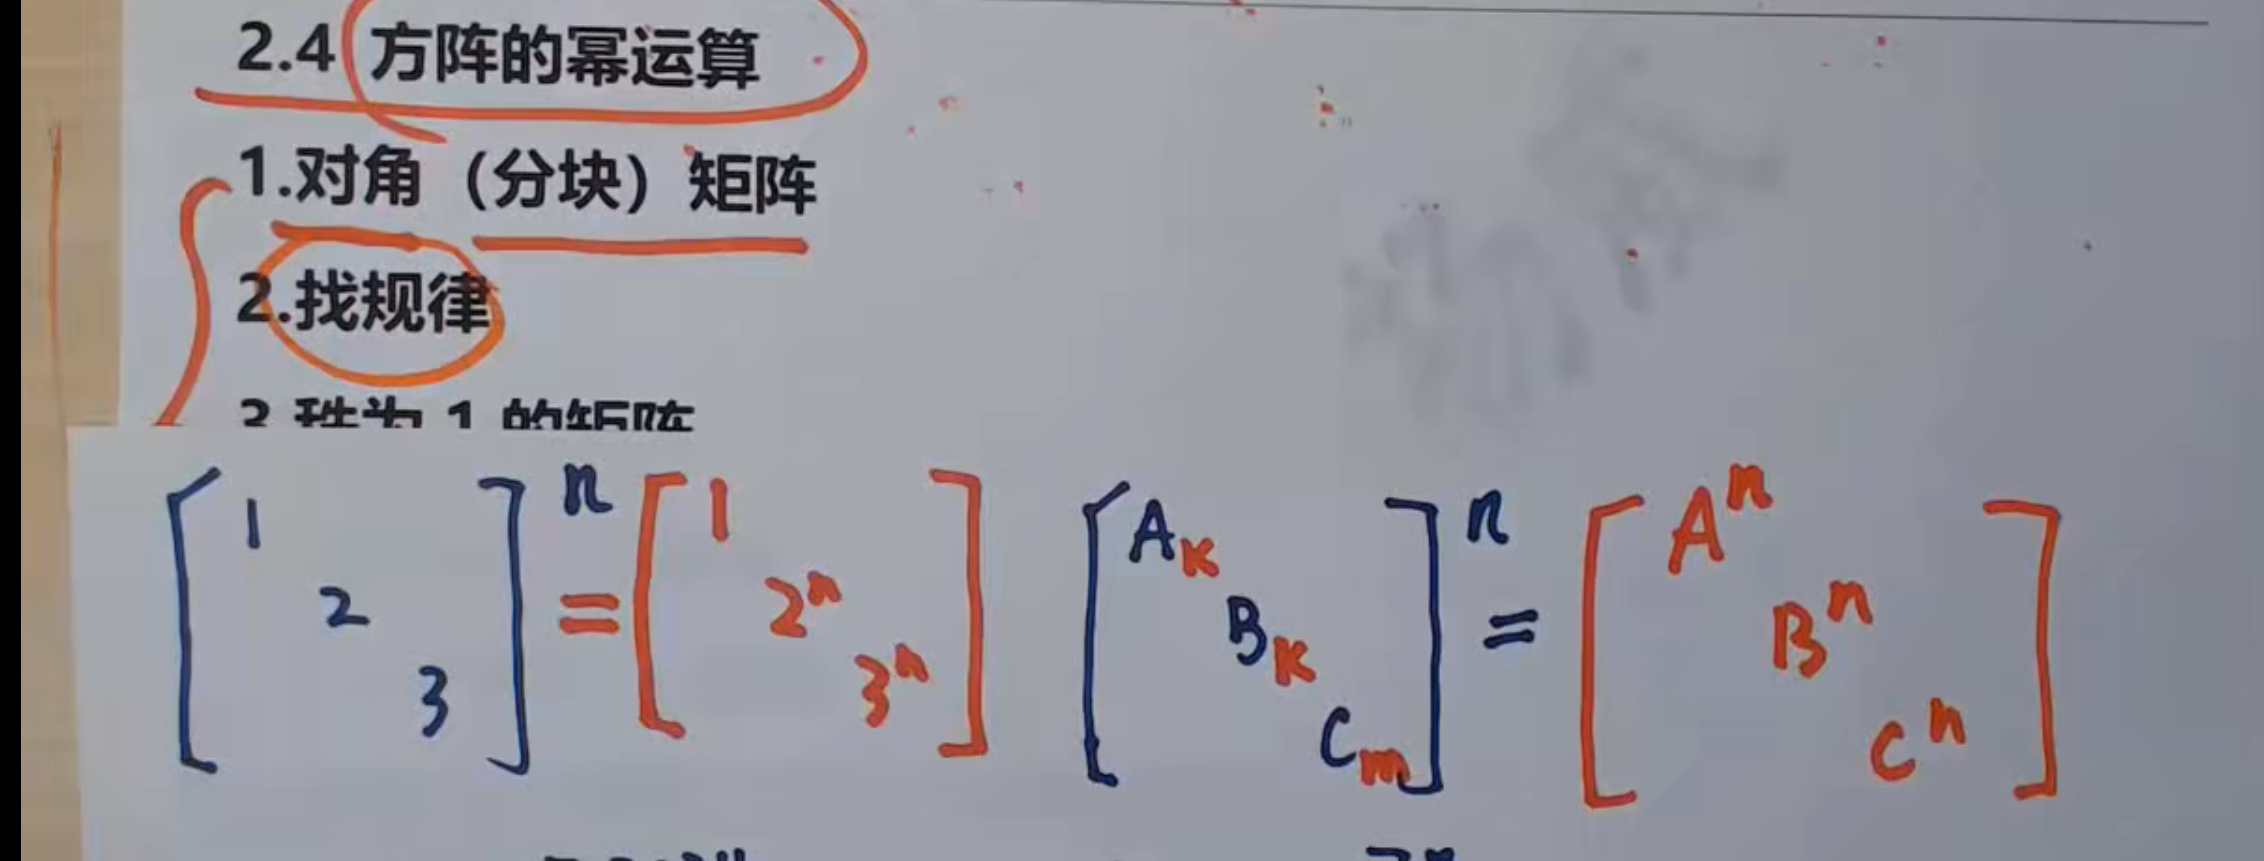 2.4 方阵的幂运算
1.对角（分块）矩阵
2.找规律
3.秩为 1 的矩阵
[1 2 3]ⁿ = [1 2ⁿ 3ⁿ] [A_K B_K C_m]ⁿ = [Aⁿ Bⁿ Cⁿ]